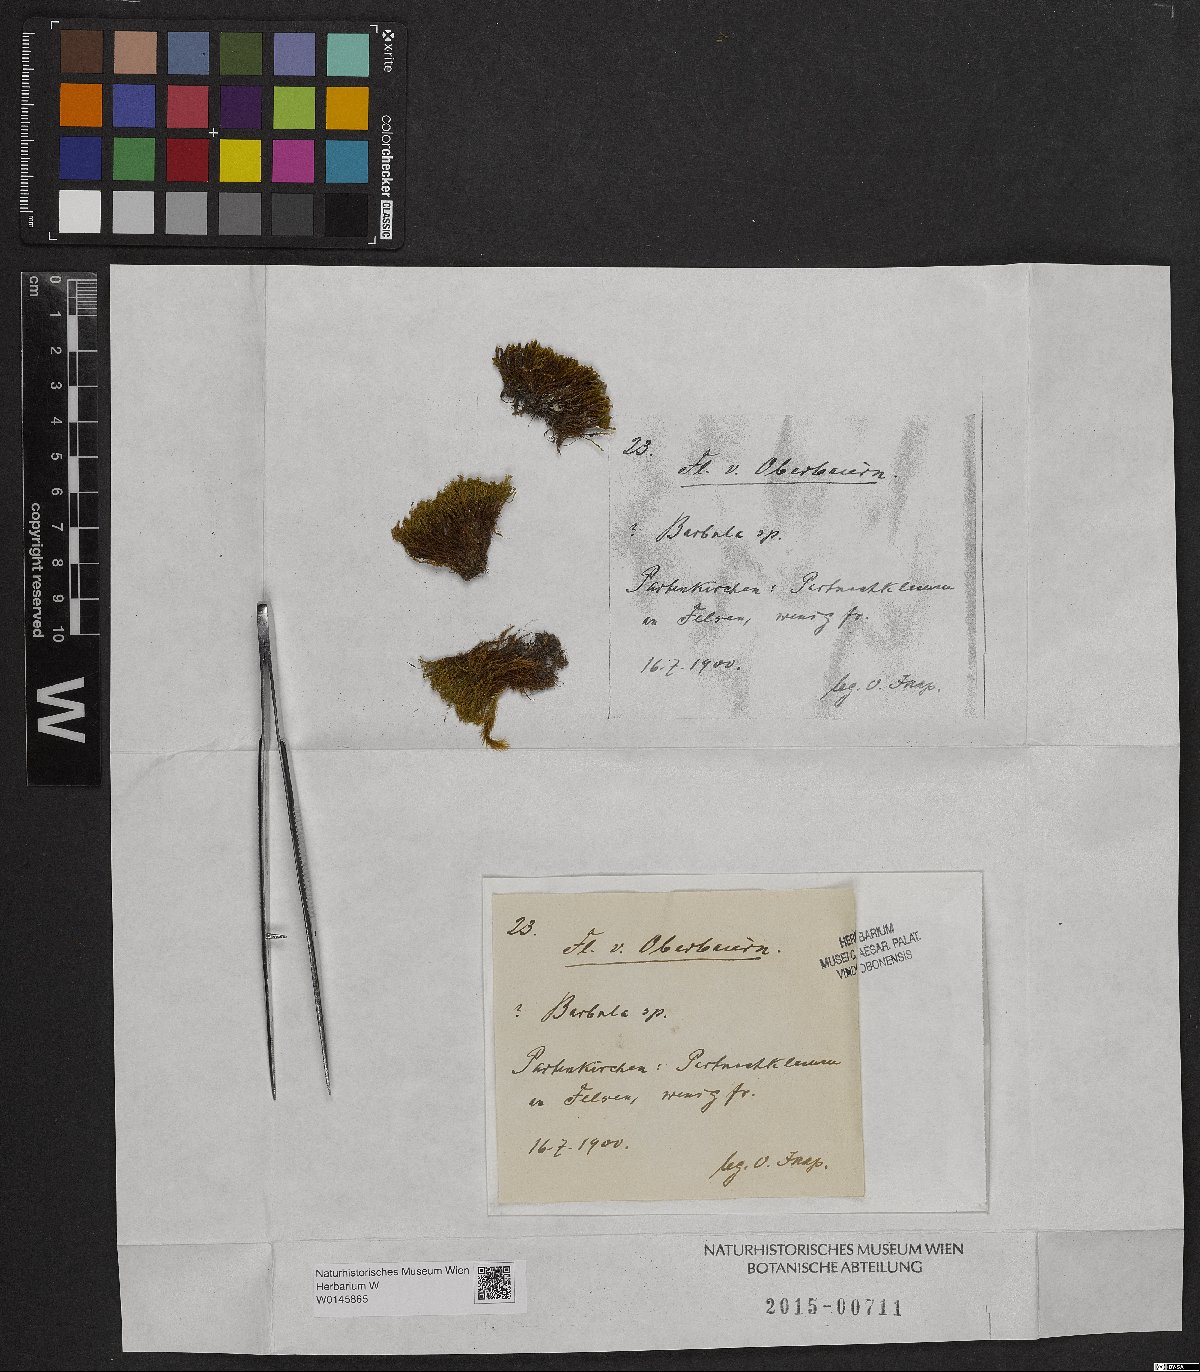 x·rite
colorchecker CLASSIC
mm
cm 0 1 2 3 4 5 6 7 8 9 10
copyright reserved
W
23.
Fl. v. Oberbaiern.
? Barbula sp.
Partenkirchen: Partnachklamm
an Felsen, wenig fr.
16.7.1900.
leg. v.
23.
Fl. v. Oberbaiern.
? Barbula sp.
Partenkirchen: Partnachklamm
an Felsen, wenig fr.
16.7.1900.
leg. v.
HERBARIUM
MUSEI CAESAR. PALAT.
VINDOBONENSIS
NATURHISTORISCHES MUSEUM WIEN
BOTANISCHE ABTEILUNG
2015-00711
Naturhistorisches Museum Wien
Herbarium W
W0145865
BY-SA